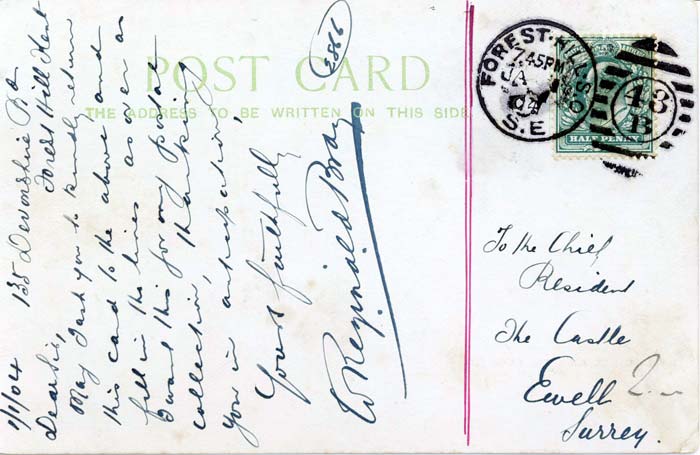 POST CARD
THE ADDRESS TO BE WRITTEN ON THIS SIDE
2386
1/1/04 135 Devonshire Rd
Forest Hill Kent
Dear Sir,
May I ask you to kindly return
this card to the above and
fill in the lines as over as
I want this for my postal
collection, Thanking
you in anticipation,
Yours faithfully
W Reginald Bray
FOREST-HILL
7.45PM
JA 1
04
S.E
43
B
HALF PENNY
To the Chief
Resident
The Castle
Ewell
Surrey.